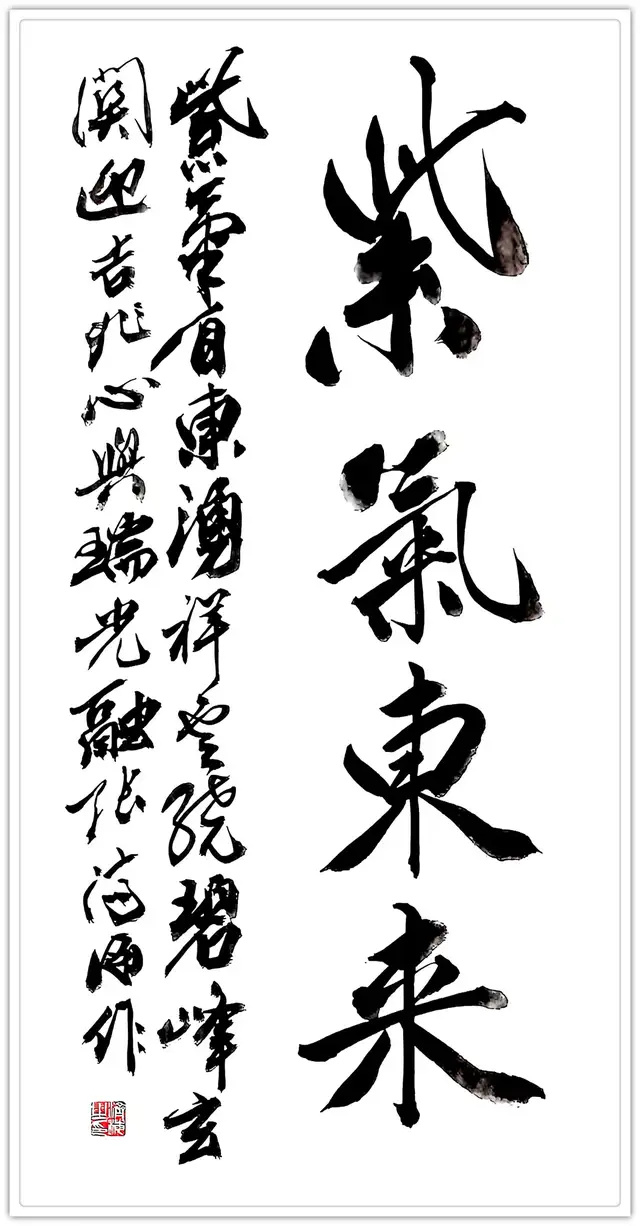 紫氣東来
紫氣自東湧祥雲绕碧峰玄
關迎吉兆心與瑞光融张作